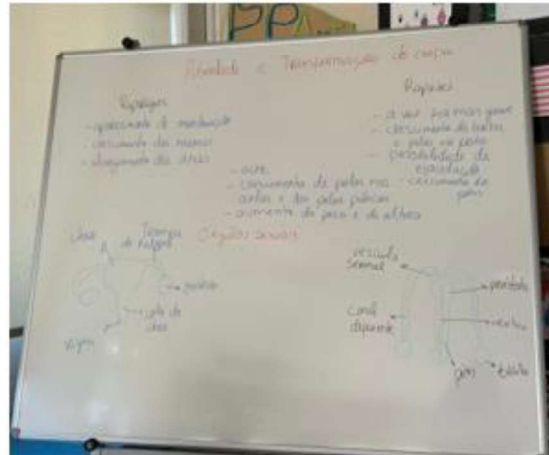 PP
Puberdade e Transformação do corpo
Raparigas
- aparecimento da menstruação
- crescimento das mamas
- alargamento das ancas
Rapazes
- a voz fica mais grave
- crescimento da barba
e pelos no peito
- possibilidade de
ejaculação
- crescimento do
pénis
- acne
- crescimento de pelos nas
axilas e dos pelos púbicos
- aumento do peso e da altura
Órgãos sexuais
útero
Trompa
de Falópio
ovário
colo do
útero
vagina
vesícula
seminal
canal
deferente
próstata
uretra
pénis
testículo